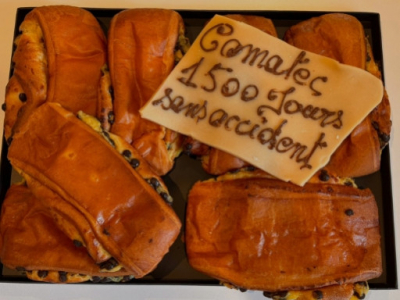 Comatec
1500 Jours
sans accident